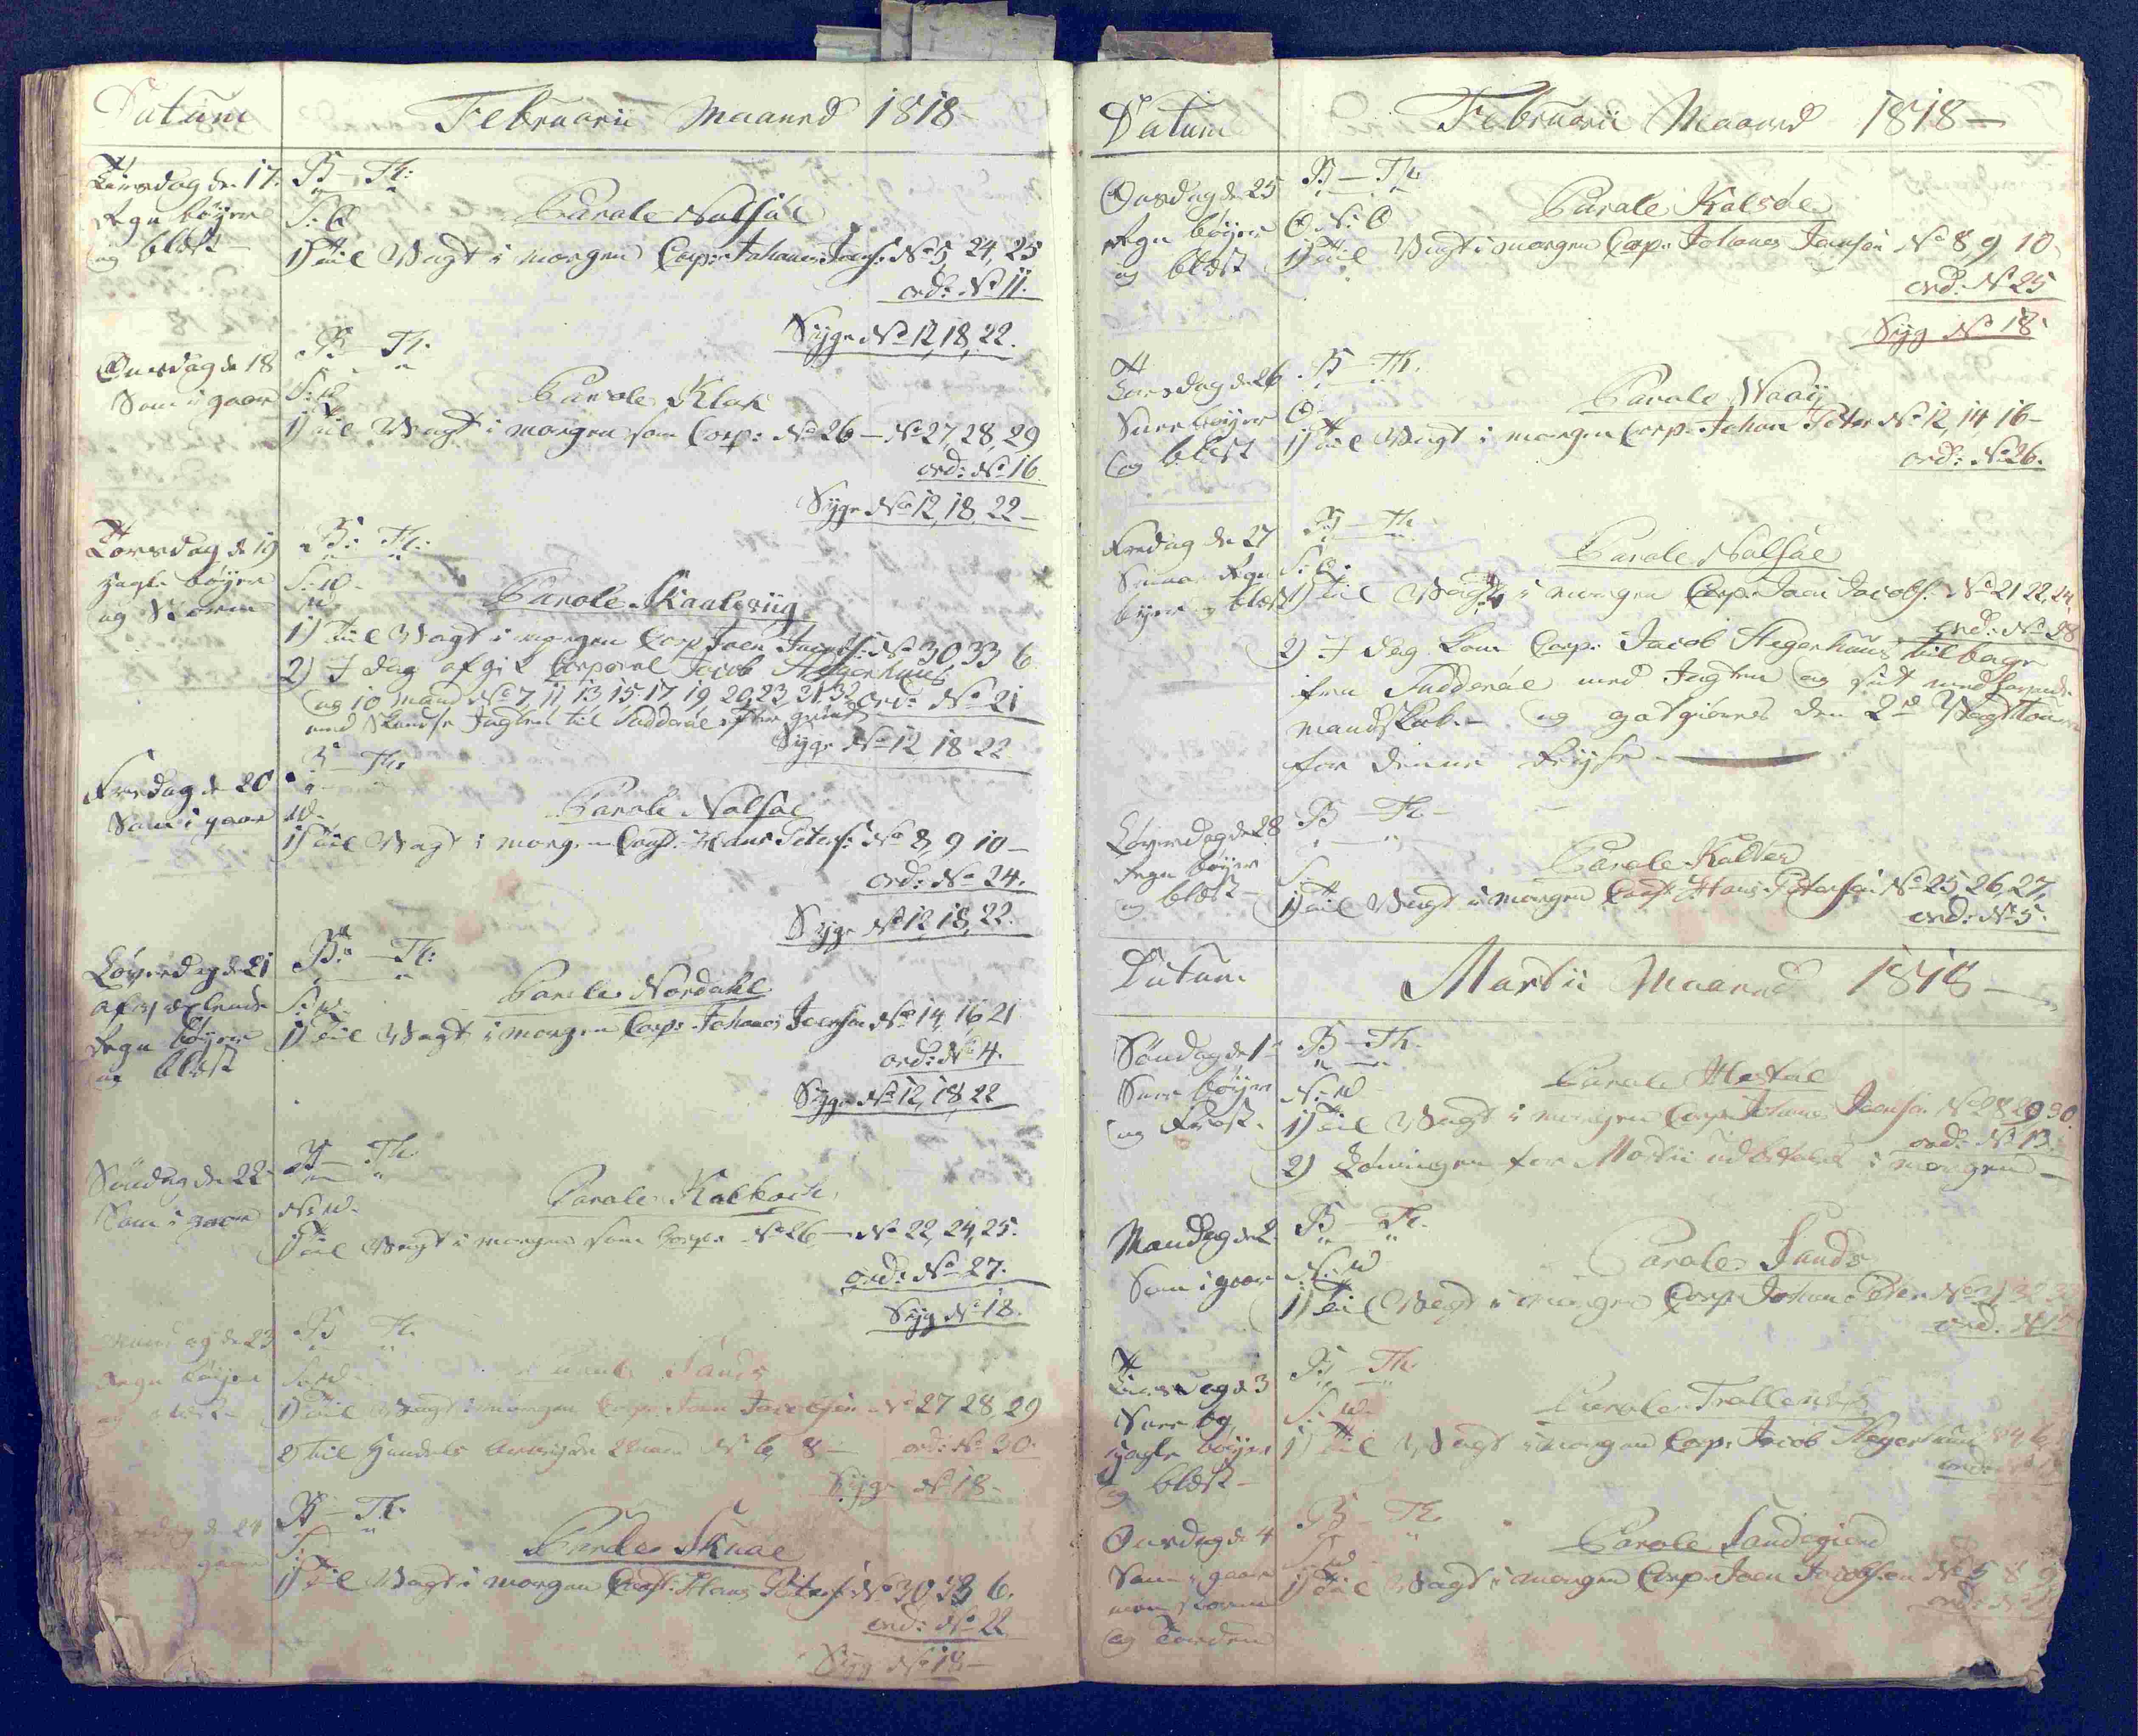 Datum
Februarii Maaned 1818
Tiirsdag de 17.
Regn bøÿer
og blæst
B — Th:
S: O
Parole Nolsøe
1) Til Wagt i morgen Corp: Johanes Joens: No 5, 24, 25
ord: No 11.
Sÿge No 12, 18, 22.
Onsdag de 18
Som i gaar
B — Th:
S: W
Parole Klak
1) Til Wagt i morgen som Corp: No 26 — No 27, 28, 29
ord: No 16
Sÿge No 12, 18, 22 —
Torsdag d 19
hagle bøÿer
og Storm
B: Th:
S: W.
W
Parole Skaalevÿg
1) Til Wagt i morgen Corp Joen Jacobs: No 30, 33 6
2) I dag afgik Corporal Jacob Hegerhuus
og 10 mand No 7, 11, 13, 15, 17, 19, 20, 23, 31, 32 ord: No 21
med Skandse Jagten til Sudderøe efter
Sÿge No 12 18 22
Fredag d 20
Som i gaar
B — Th:
W.
Parole Nolsøe
1) Til Wagt i morgen Corp: Hans Peters: No 8, 9 10 —
ord: No 24.
Sÿge No 12, 18, 22.
Løverdag de 21
afvexlende
Regn bøÿer
og blæst
B: — Th:
S: W.
Parole Nordahl
1) Til Wagt i morgen Corp: Johanes Joensen No 14, 16 21
ord: No 4.
Sÿge No 12, 18, 22
Søndag de 22
Som i gaar
B — Th
N: W.
Parole Kalbach
1) Til Wagt i morgen som Corp: No 26 — No 22, 24, 25.
ord: No 27.
Sÿg No 18.
Mandag de 23
Regn bøÿer
og blæst
B Th.
S: W
Parole Sands
1) Til Wagt i morgen Corp: Joen Jacobsen No 27 28, 29
2) til Handels 2 mand No 6, 8 — ord: No 30.
Sÿge No 18 —
dag d 24
gaar
B — Th:
S:
Parole Skuøe
1) Til Wagt i morgen Corp: Hans Peters: No 30, 33 6.
ord: No 22
Sÿg No 18 —
Datum
Februarii Maaned 1818 —
Onsdag de 25
Regn bøÿer
og blæst
B — Th
O N: O
Parole Kalsøe
1) Til Wagt i morgen Corp: Johanes Joensen No 8, 9 10
ord: No 25
Sÿg No 18
Torsdag d 26
Snee bøÿer
og blæst
B — Th.
O.
Parole Waaÿ
1) Til Wagt i morgen Corp. Johan Peter No 12, 14, 16 —
ord: No 26.
Fredag de 27
Snee Regn
bøÿer og blæst
B — Th
S: O.
Parole Nolsøe
1) Til Wagt i morgen Corp. Joen Jacobs: No 21 22, 24,
ord: No 28
2) I dag kom Corp: Jacob Hegerhuus tilbage
fra Sudderøe med Jagten og sit medhavende
mandskab. — og godgiøres den 2d Wagt Tour
for denne Reÿse —
Løverdag de 28
Regn bøÿer
og blæst —
B — Th —
S:
Parole Kalber
1) Til Wagt i morgen Corp: Hans Petersen No 25, 26, 27,
ord: No 5.
Datum
Martii Maaned 1818 —
Søndag de 1
Snee bøÿer
og Frost.
B — Th.
N: W
Parole Hestøe
1) Til Wagt i morgen Corp: Johanes Joensen No 28 29 30.
ord: No 13.
2) Løningen for Martii udbetales i morgen —
Mandag de 2.
Som i gaar
B — Th.
N: W
Parole Sands
1) Til Wagt i morgen Corp: Johan Peter No 31 32
ord. No 15
Tiirsdag d 3
Snee og
hagle bøÿer
og blæst —
B — Th.
S: W.
Parole
1) Til Wagt i morgen Corp: Jacob Hegerhuus
ord:
Onsdag de 4
Som i gaar
men storm
og torden
B — Th.
S: W
Parole Sandsgierd
1) Til Wagt i morgen Corp. Joen Jacobsen No 5 8 9
ord: